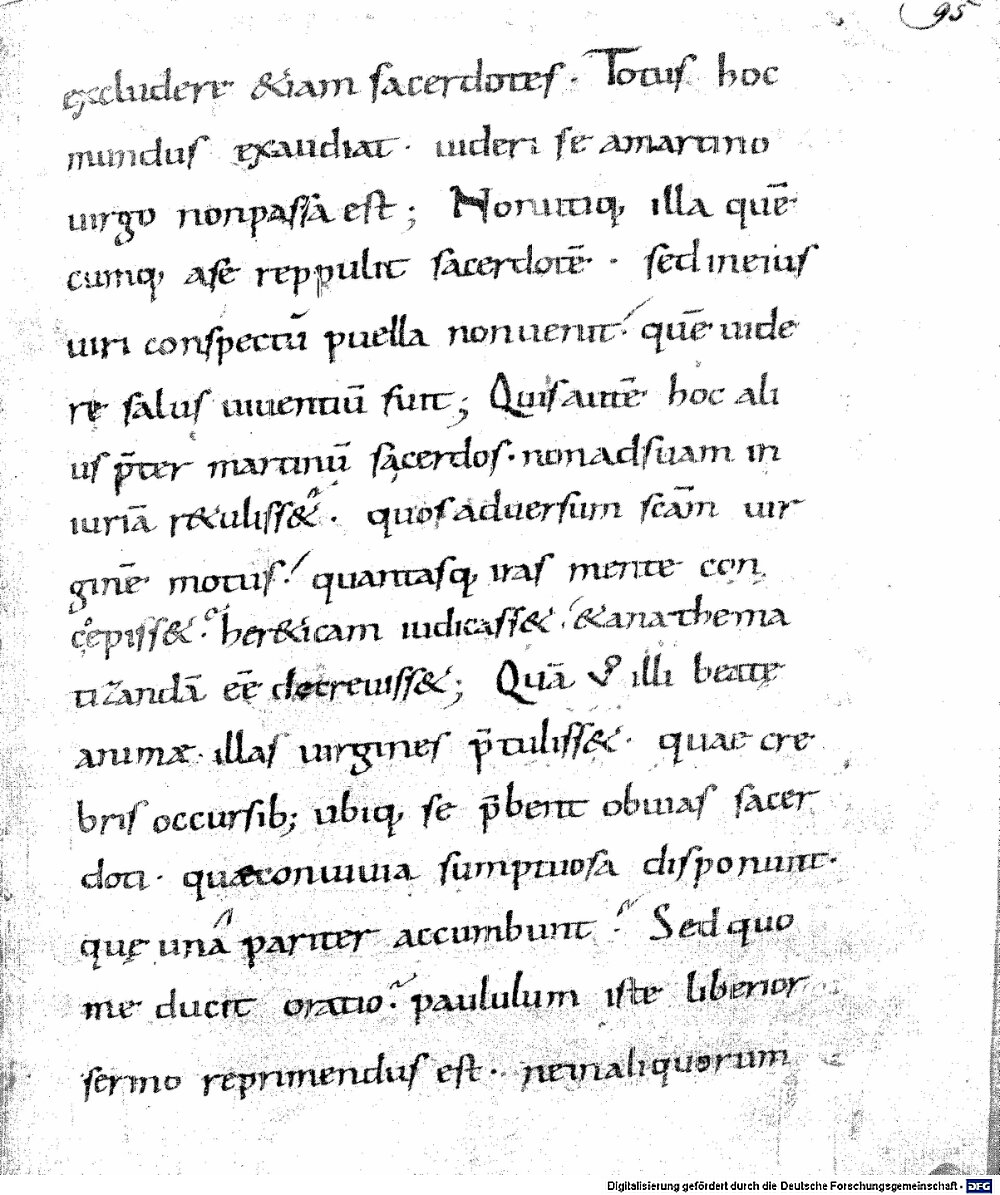 95
excludere &iam sacerdotes · Totus hoc
mundus exaudiat · uideri se amartino
uirgo nonpassa est ; Nonutiq, illa quē
cumq, ase reppulit sacerdotē · sed ineius
uiri conspectū puella nonuenit · quē uide
re salus uiuentiū fuit ; Quisautē hoc ali
us p̄ter martinū sacerdos · nonadsuam in
iuriā r&uliss& · quosaduersum scām uir
ginē motus · quantasq, iras mente con
cepiss& · her&icam iudicass& · &anathema
tizandā eē decreuiss& ; Quā ů illi beatę
animæ · illas uirgines p̄tuliss& · quae cre
bris occursib; ubiq, se p̄bent obuias sacer
doti · quæconuiuia sumptuosa disponunt ·
quę una pariter accumbunt · Sed quo
me ducit oratio · paululum iste liberior
sermo reprimendus est · neinaliquorum
Digitalisierung gefördert durch die Deutsche Forschungsgemeinschaft - DFG